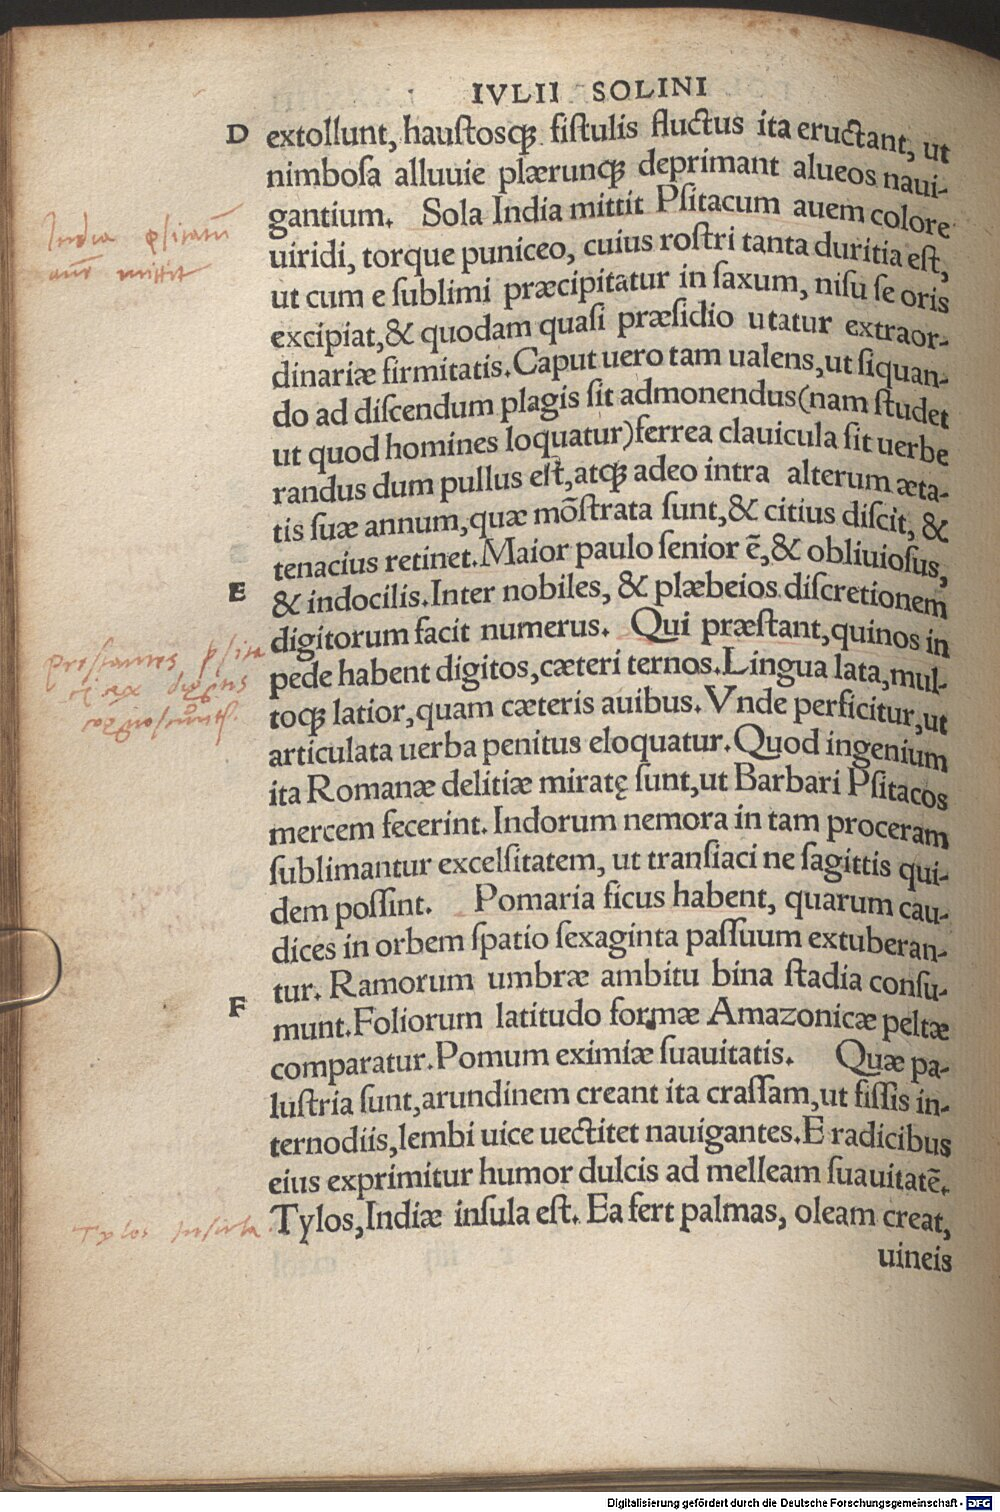 IVLII SOLINI
D extollunt, hauſtosqꝫ fiſtulis fluctus ita eructant, ut
nimboſa alluuie plærunqꝫ deprimant alueos naui-
gantium. Sola India mittit Pſitacum auem colore
India psitacũ
uiridi, torque puniceo, cuius roſtri tanta duritia eſt,
auẽ mittit
ut cum e ſublimi præcipitatur in ſaxum, niſu ſe oris
excipiat,& quodam quaſi præſidio utatur extraor-
dinariæ firmitatis.Caput uero tam ualens,ut ſiquan-
do ad diſcendum plagis ſit admonendus(nam ſtudet
ut quod homines loquatur)ferrea clauicula ſit uerbe
randus dum pullus eſt,atqꝫ adeo intra alterum æta-
tis ſuæ annum,quæ mõſtrata ſunt,& citius diſcit, &
tenacius retinet.Maior paulo ſenior ẽ,& obliuioſus,
E & indocilis.Inter nobiles, & plæbeios diſcretionem
digitorum facit numerus. Qui præſtant,quinos in
Prestantes psita
pede habent digitos,cæteri ternos.Lingua lata,mul-
ci ex digitis
toqꝫ latior,quam cæteris auibus.Vnde perficitur,ut
articulata uerba penitus eloquatur.Quod ingenium
ita Romanæ delitiæ miratę ſunt,ut Barbari Pſitacos
mercem fecerint.Indorum nemora in tam proceram
ſublimantur excelſitatem, ut tranſiaci ne ſagittis qui-
dem poſſint. Pomaria ficus habent, quarum cau-
dices in orbem ſpatio ſexaginta paſſuum extuberan-
tur. Ramorum umbræ ambitu bina ſtadia conſu-
F munt.Foliorum latitudo formæ Amazonicæ peltæ
comparatur.Pomum eximiæ ſuauitatis. Quæ pa-
luſtria ſunt,arundinem creant ita craſſam,ut fiſſis in-
ternodiis,lembi uice uectitet nauigantes.E radicibus
eius exprimitur humor dulcis ad melleam ſuauitatẽ.
Tylos Insula
Tylos,Indiæ inſula eſt. Ea fert palmas, oleam creat,
uineis
Digitalisierung gefördert durch die Deutsche Forschungsgemeinschaft - DFG